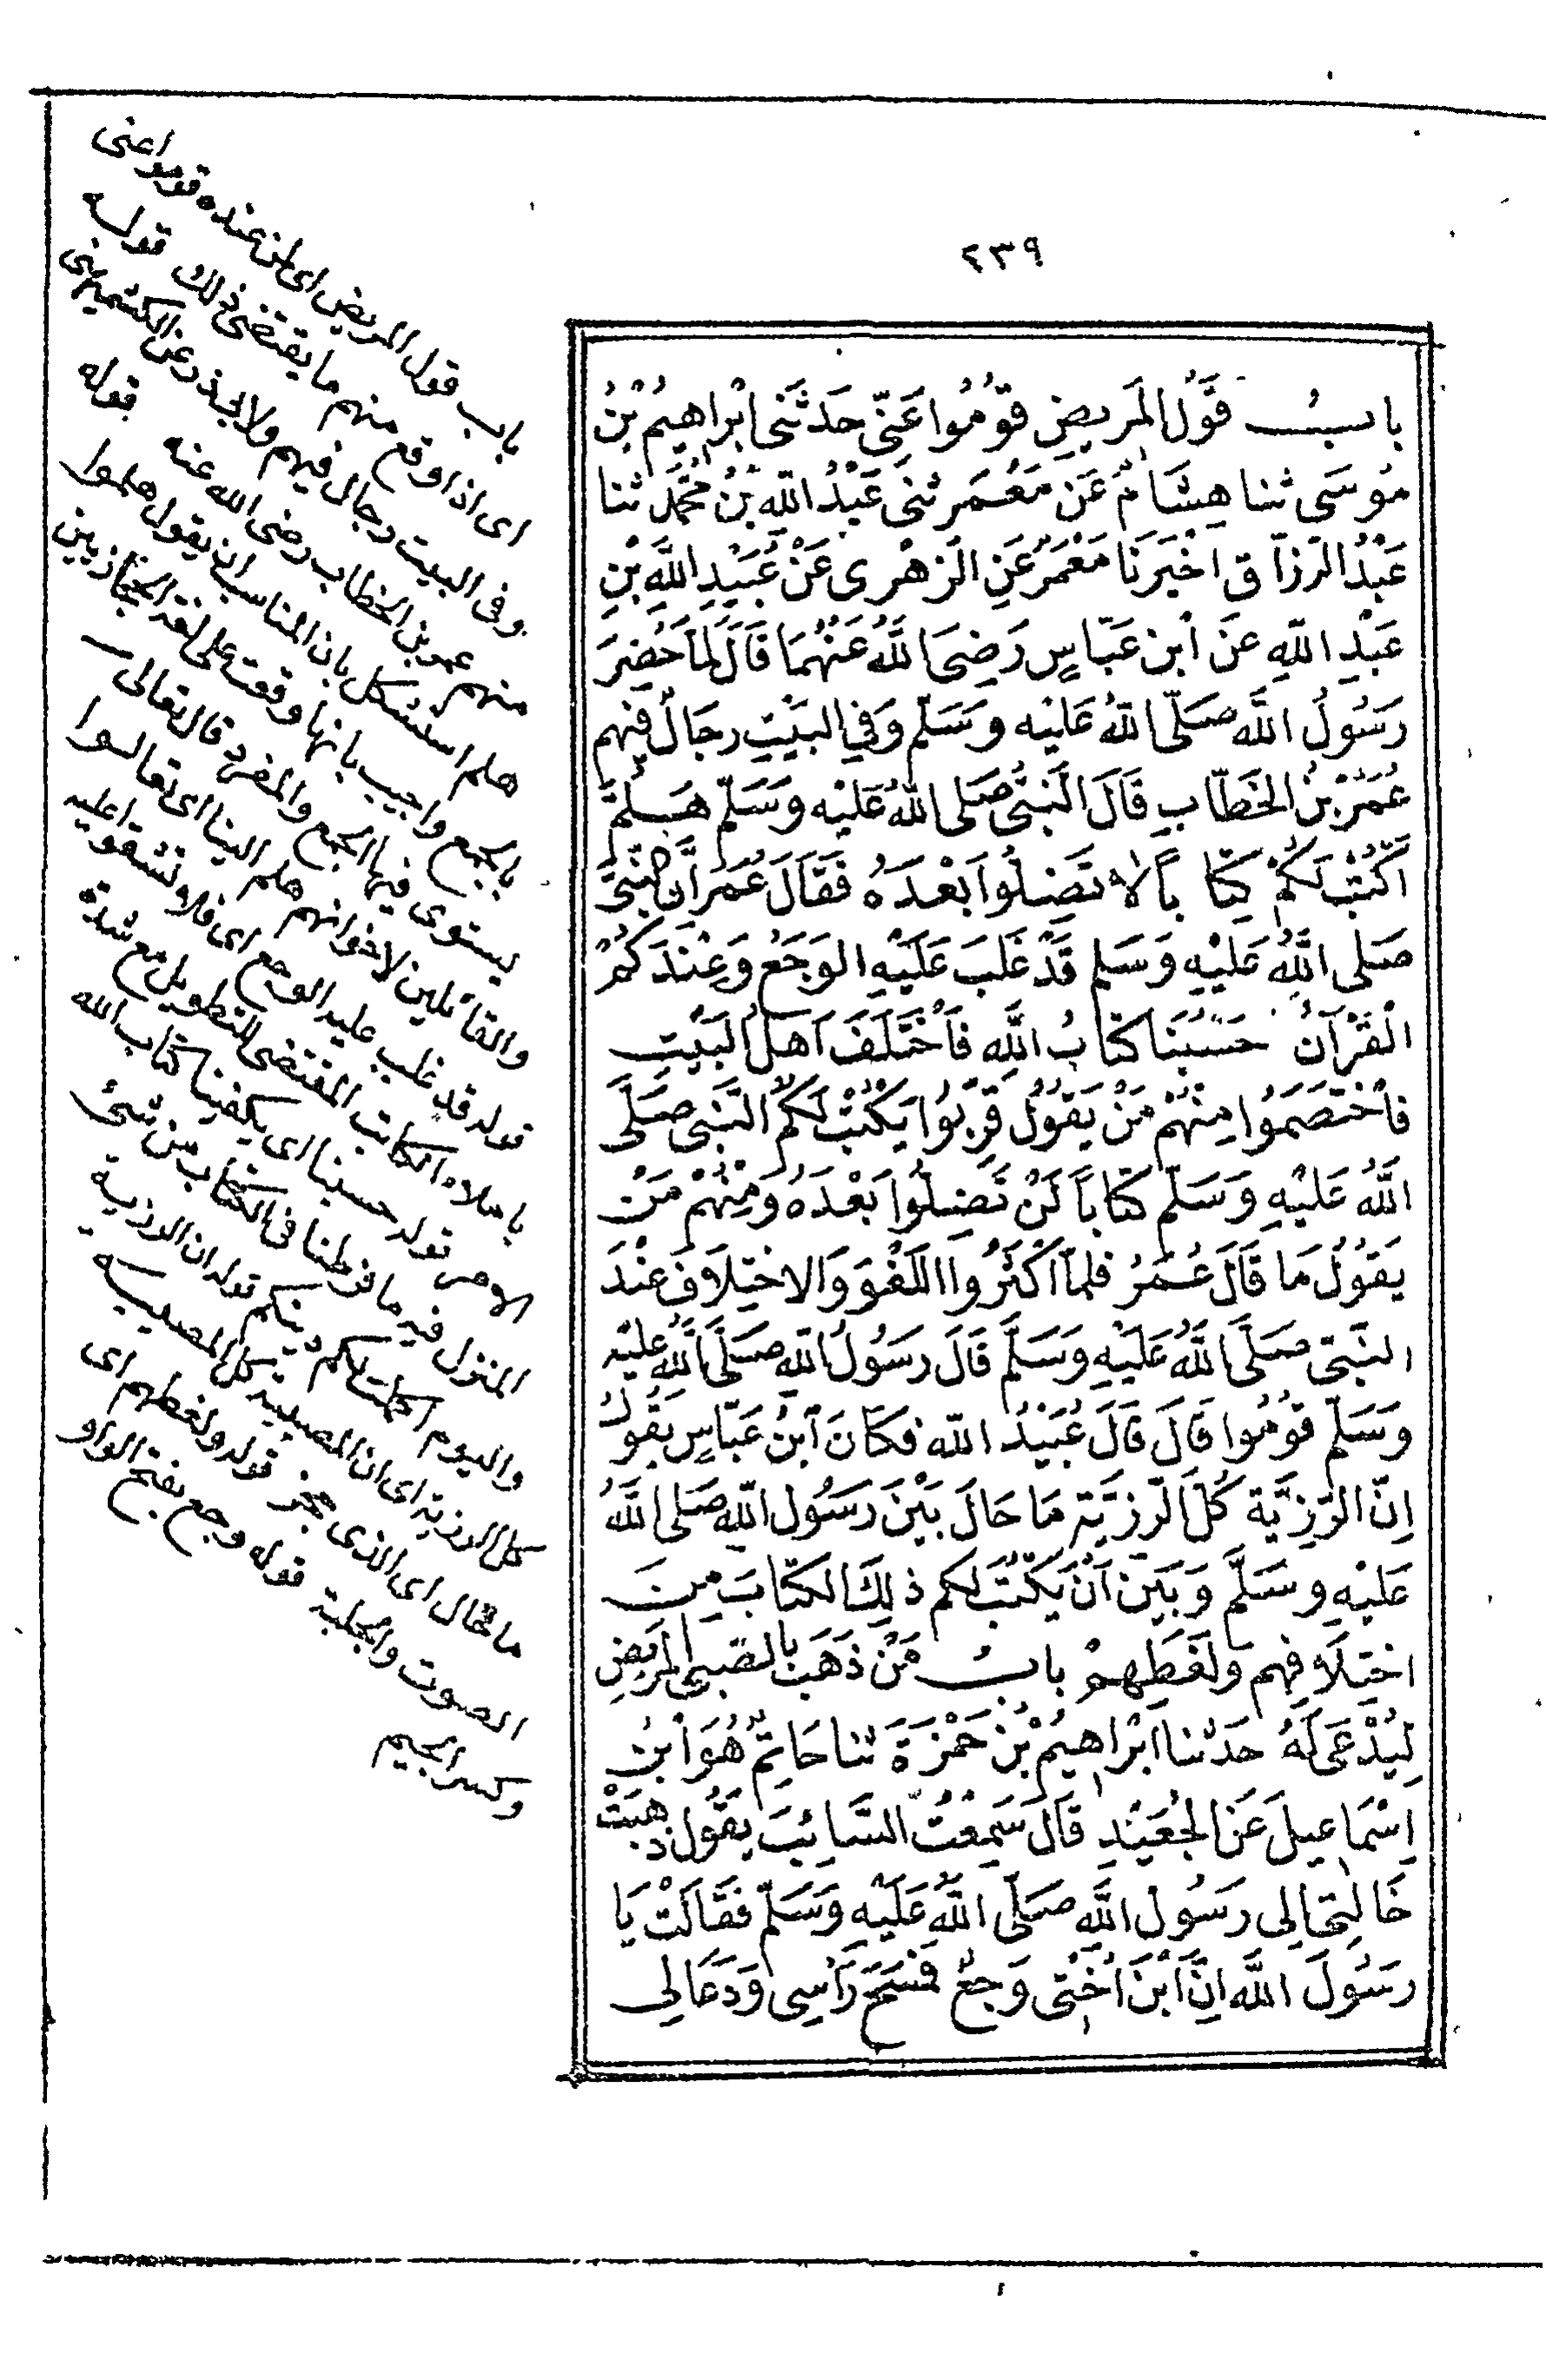 ٤٣٩
باب قَوْلِ الْمَرِيضِ قُوْمُوا عَنِّي حَدَّثَنِي ابْرَاهِيمُ بْنُ
مُوسَى ثنا هِشَامٌ عَن مَعْمَر ثنى عَبْدُ اللّهِ بْنُ مُحَمَّد ثنا
عَبْدُ الرزاق اخْبَرَنَا مَعْمَرٌ عَنِ الزهْرى عَنْ عُبَيْدِ اللَّهِ بْنِ
عَبْدِ اللّهِ عَن ابْن عَبّاسٍ رَضِىَ اللّهُ عَنْهُمَا قَالَ لمَا حُضِرَ
رَسُولُ اللَّه صَلّى اللّهُ عَلَيْه وَسَلّم وَفِي البَيْتِ رجَالٌ فِيهم
عُمَرُ بْنُ الْخَطّابِ قَالَ النَّبِىُّ صَلى اللّهُ عَلَيْه وَسَلّم هَلُمَّ
اَكْتُبْ لَكُمْ كِتَاباً لا تَضِلُوا بَعْدَهُ فَقَالَ عُمَرُ انَّ النَّبِىَّ
صَلى اللَّهُ عَلَيْهِ وَسَلم قَدْ غَلَبَ عَلَيْهِ الوَجَعُ وَعِنْدَكُمْ
الْقُرْآنُ حَسْبُنَا كتَابُ اللَّهِ فَاخْتَلَفَ اَهلُ الْبَيْتِ
فَاخْتَصَمُوا مِنْهُمْ مَنْ يَقُولُ قَرِّبُوا يَكْتُبْ لَكُمُ النَّبِى صَلَّى
اللَّهُ عَلَيْهِ وَسَلّم كتَاباً لَنْ تَضِلُوا بَعْدَهُ وَمِنْهُمْ مَنْ
يَقُولُ مَا قَالَ عُمَرُ فلمّا اَكْثَرُوا اللَّغْوَ وَالاختِلَافَ عنْدَ
النَّبِى صَلَّى اللَّهُ عَلَيْهِ وَسَلَّمَ قَالَ رسُولُ اللّهِ صَلَّى اللَّهُ عليْه
وَسَلّم قُومُوا قَالَ قَالَ عُبَيْدُ اللّه فكَانَ ابْنُ عَبّاسٍ يَقُولُ
اِنّ الرَّزِيَّة كُلّ الرَّزِيَّةِ مَا حَالَ بَيْنَ رَسُول اللّهِ صَلى اللَّهُ
عَلَيْهِ وسَلَّم وَبَيْن اَنْ يَكْتُبَ لكم ذلِكَ الكتَابَ مِنَ
اختِلَافِهم وَلَغَطِهمْ باب مَنْ ذَهَبَ بالصَّبِىِّ الْمَرِيضِ
لِيُدْعَى لَهُ حَدثنا ابْرَاهِيمُ بْنُ حَمْزَةَ ثنا حَاتِمٌ هُوَ ابْنُ
اِسْمَاعِيلَ عَن الجُعَيْدِ قَالَ سَمِعْتُ السَّائِبَ يَقُول ذهَبَتْ
خَالَتِى الى رَسُول اللَّهِ صَلّى اللَّهُ عَلَيْهِ وَسَلّم فَقَالَتْ يَا
رَسُولَ اللَّه اِنَّ ابْنَ اُخْتِى وَجِعٌ فَمَسَحَ رَأسِى وَدَعَا لِى
باب قول المريض اى لمن عنده قوموا عنى
اى اذا وقع منهم ما يقتضى ذلك قوله
وفى البيت رجال فيهم ولابى ذر عن الكشميهنى
منهم عمر بن الخطاب رضى الله عنه قوله
هلم استشكل بان المناسب ان يقول هلموا
بالجمع واجيب بانها وقعت على لغة الحجازيين
يستوى فيها الجمع والمفرد قال تعالى
والقائلين لاخوانهم هلم الينا اى تعالوا
قوله قد غلب عليه الوجع اى فلا تشقوا عليه
باملاء الكتاب المقتضى للتطويل مع شدة
الامر قوله حسبنا اى يكفينا كتاب الله
المنزل فيه ما فرطنا فى الكتاب من شئ
واليوم اكملت لكم دينكم قوله ان الرزية
كل الرزية اى ان المصيبة كل المصيبة
ما حال اى الذى حجز قوله ولغطهم اى
الصوت والجلبة قوله وجع بفتح الواو
وكسر الجيم